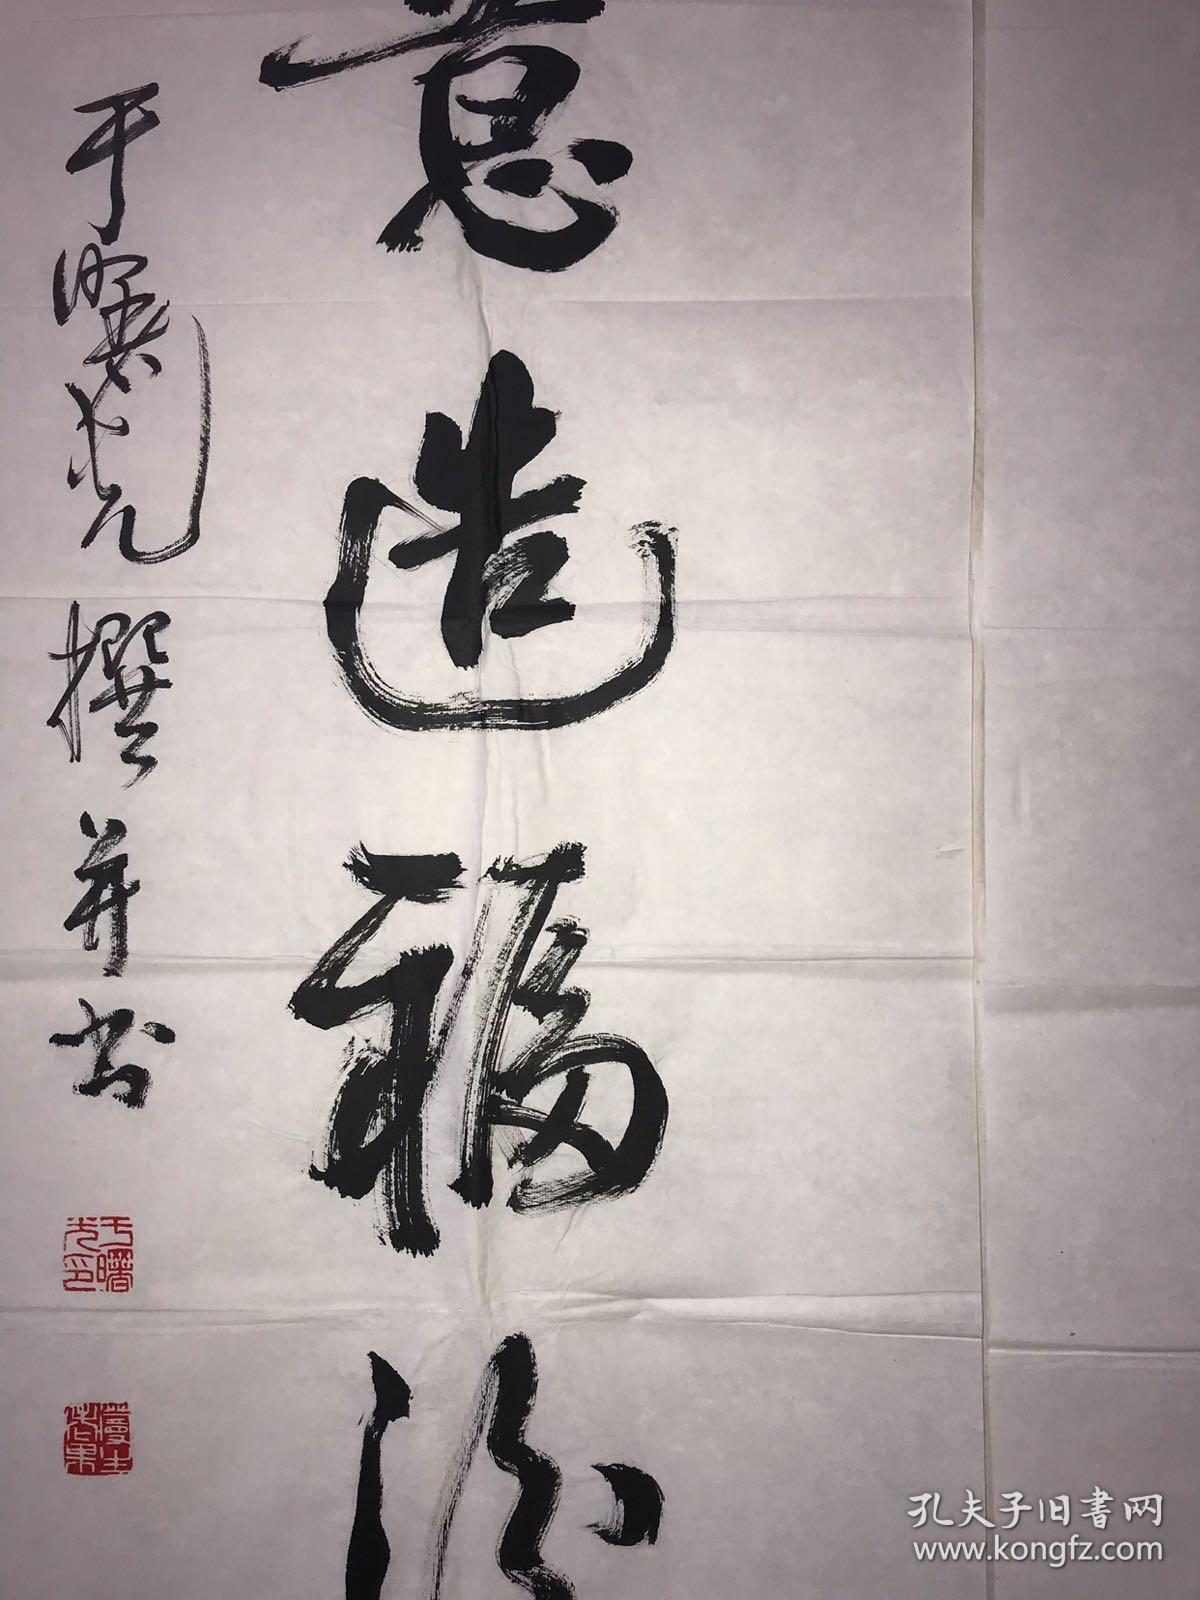 意造福治
于曙光撰并书
于曙光印
孔夫子旧书网
www.kongfz.com